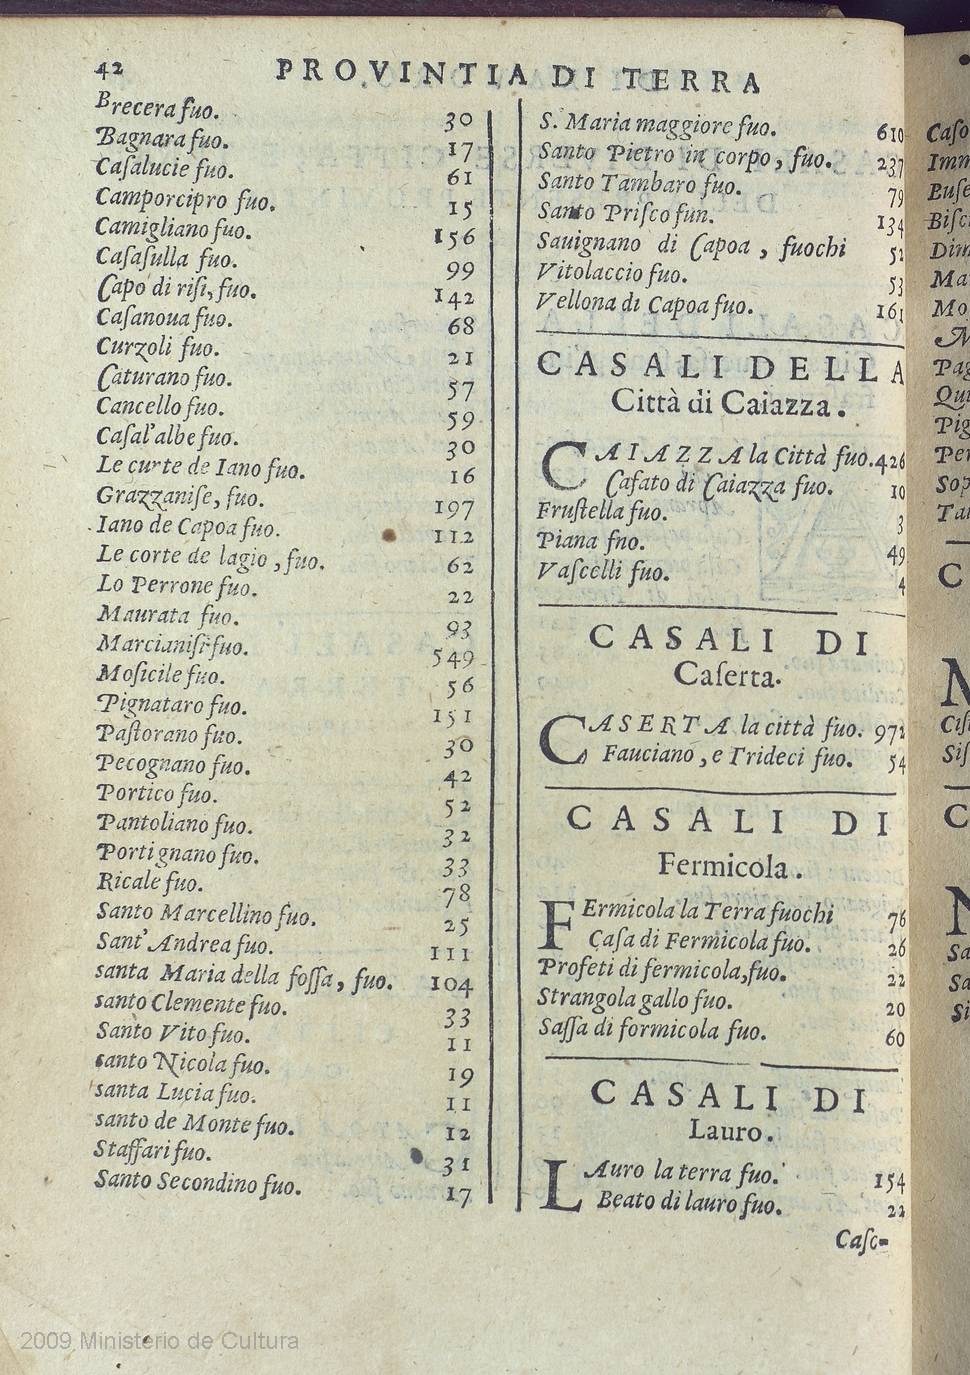 42 PROVINTIA DI TERRA
Brecera fuo. 30
Bagnara fuo. 17
Caſalucie fuo. 61
Camporcipro fuo. 15
Camigliano fuo. 156
Caſaſulla fuo. 99
Capo di riſi, fuo. 142
Caſanoua fuo. 68
Curzoli fuo. 21
Caturano fuo. 57
Cancello fuo. 59
Caſal'albe fuo. 30
Le curte de Iano fuo. 16
Grazzaniſe, fuo. 197
Iano de Capoa fuo. 112
Le corte de lagio, fuo. 62
Lo Perrone fuo. 22
Maurata fuo. 93
Marcianiſi fuo. 549
Moſicile fuo. 56
Pignataro fuo. 151
Paſtorano fuo. 30
Pecognano fuo. 42
Portico fuo. 52
Pantoliano fuo. 32
Portignano fuo. 33
Ricale fuo. 78
Santo Marcellino fuo. 25
Sant' Andrea fuo. 111
santa Maria della foſſa, fuo. 104
santo Clemente fuo. 33
Santo Vito fuo. 11
santo Nicola fuo. 19
santa Lucia fuo. 11
santo de Monte fuo. 12
Staffari fuo. 31
Santo Secondino fuo. 17
S. Maria maggiore fuo. 610
Santo Pietro in corpo, fuo. 237
Santo Tambaro fuo. 79
Santo Priſco fun. 134
Sauignano di Capoa, fuochi 52
Vitolaccio fuo. 53
Vellona di Capoa fuo. 161
CASALI DELLA
Città di Caiazza.
CAIAZZA la Città fuo. 426
Caſato di Caiazza fuo. 10
Fruſtella fuo. 3
Piana fno. 49
Vaſcelli fuo. 4
CASALI DI
Caſerta.
CASERTA la città fuo. 972
Fauciano, e Trideci fuo. 54
CASALI DI
Fermicola.
FErmicola la Terra fuochi 76
Caſa di Fermicola fuo. 26
Profeti di fermicola, fuo. 22
Strangola gallo fuo. 20
Saſſa di formicola fuo. 60
CASALI DI
Lauro.
LAuro la terra fuo. 154
Beato di lauro fuo. 22
Caſc-
2009 Ministerio de Cultura